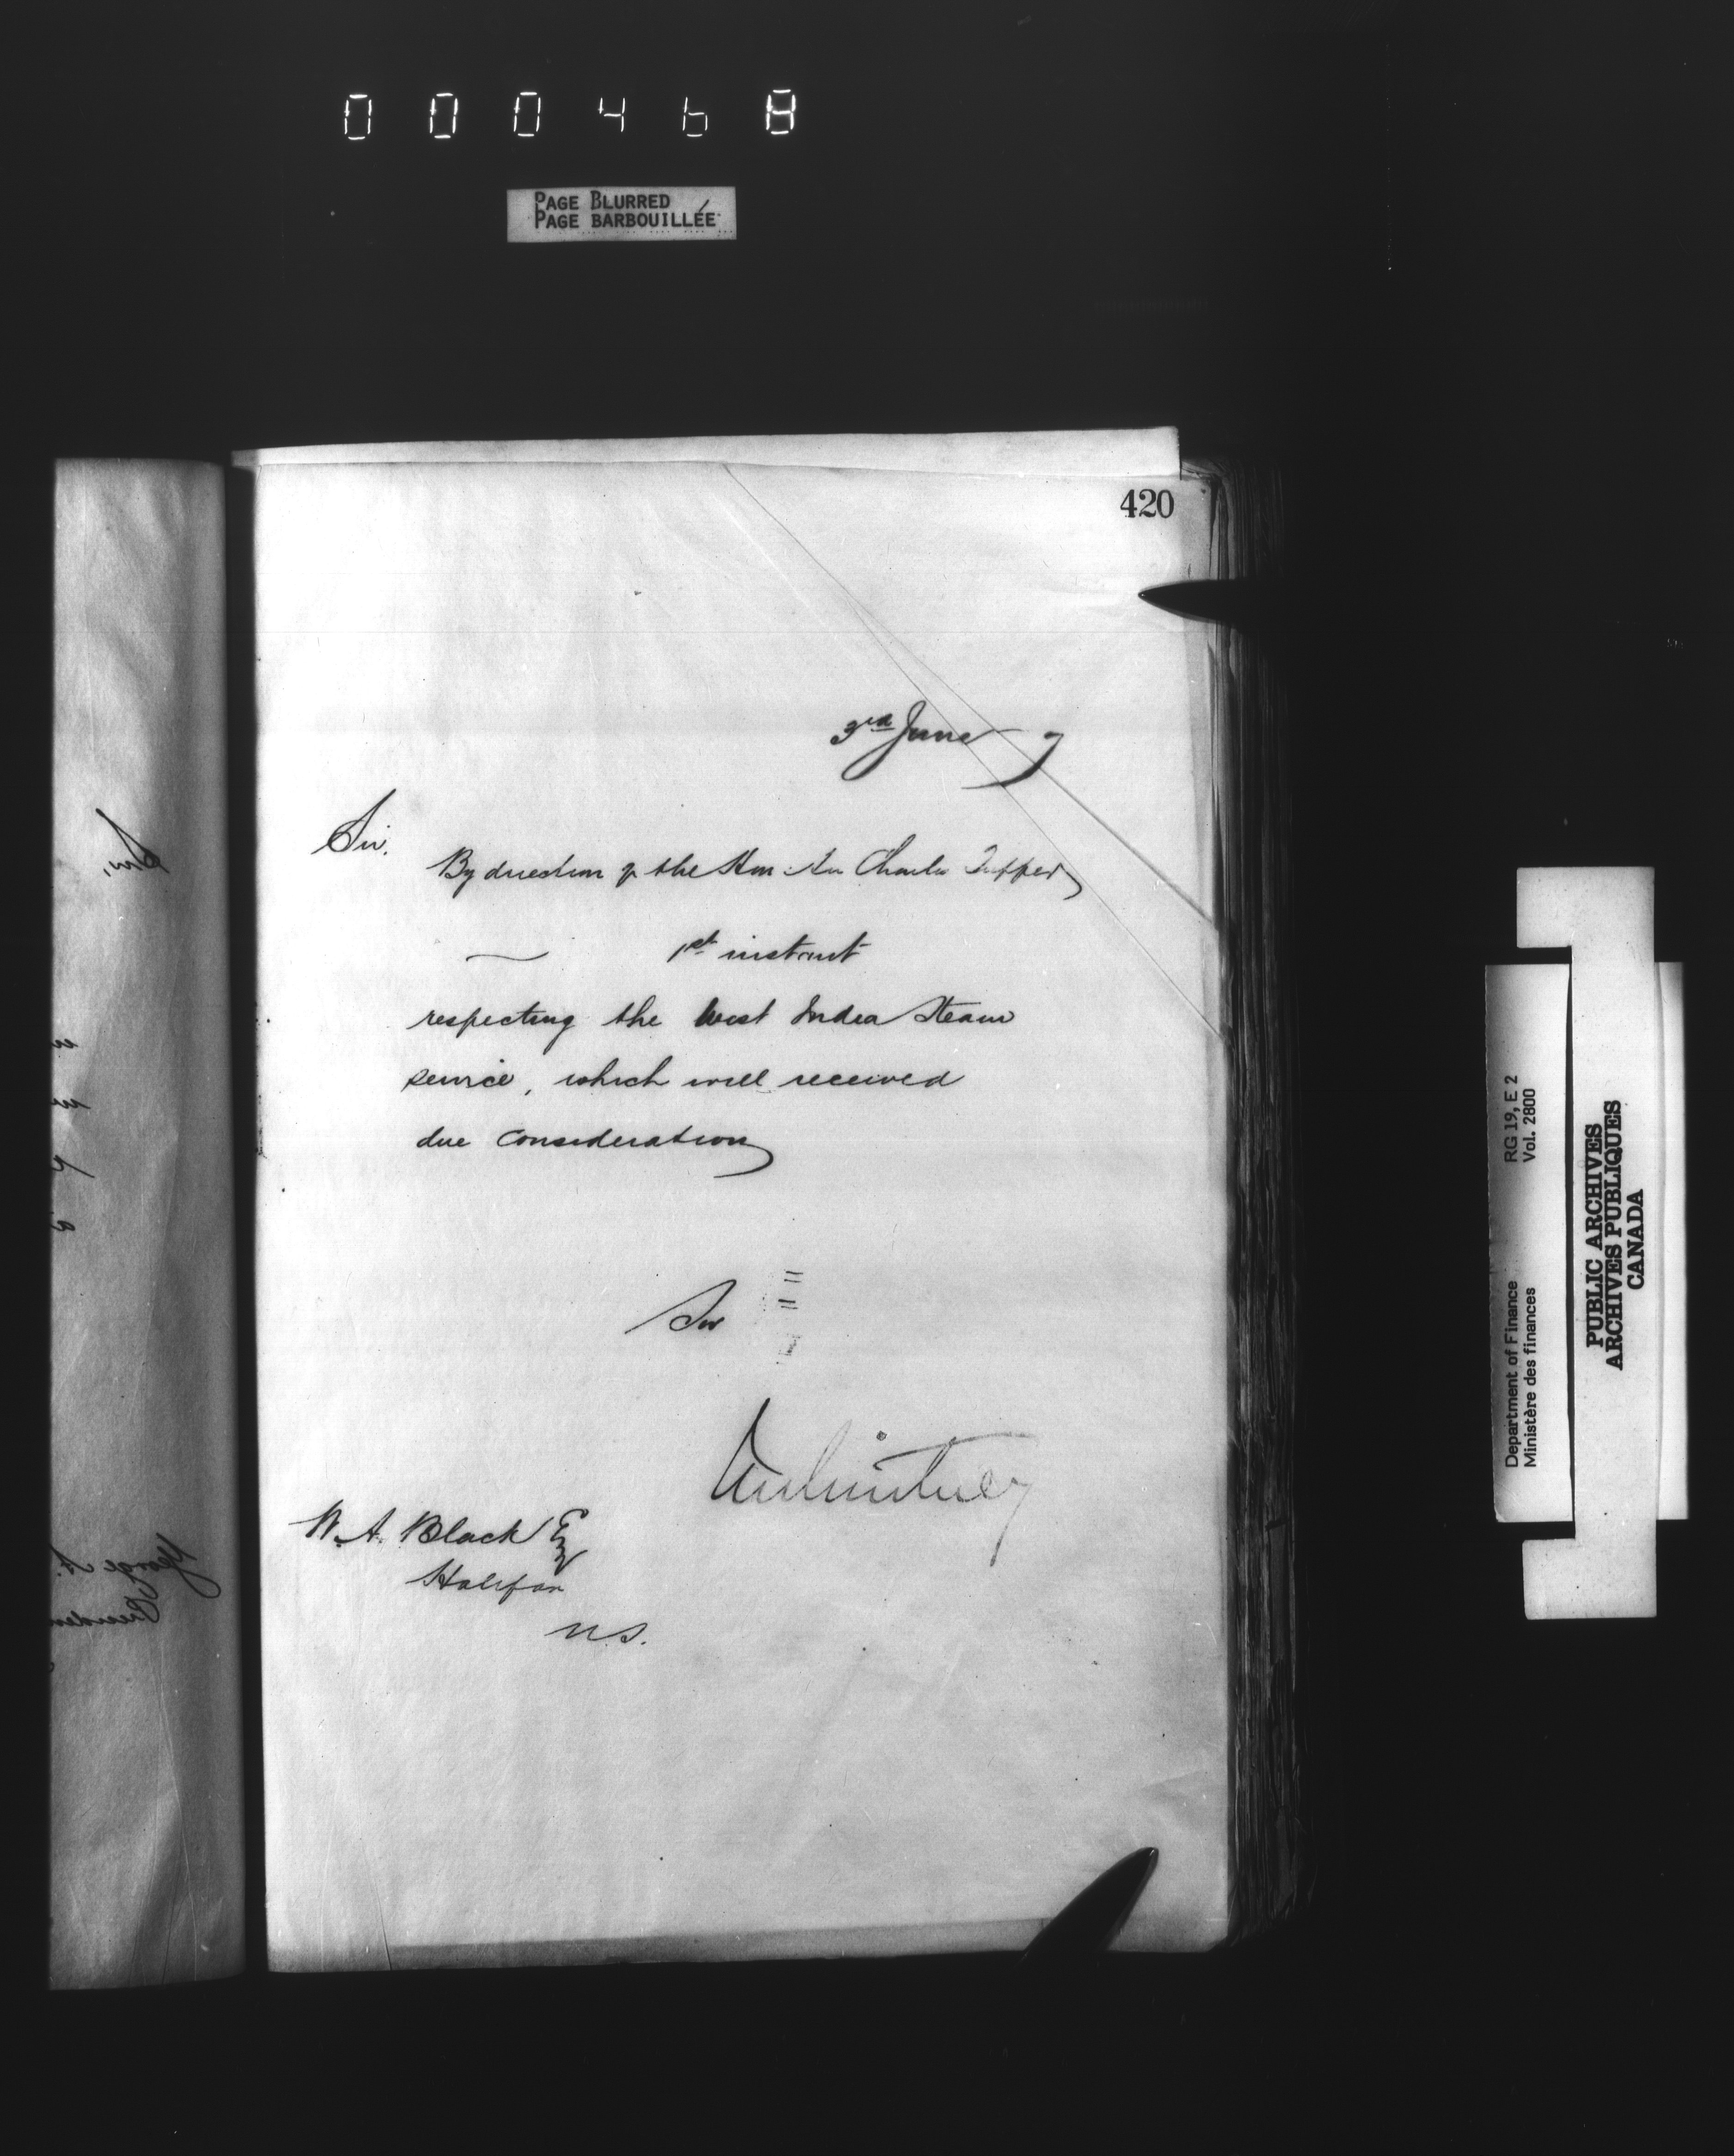 000468
PAGE BLURRED
PAGE BARBOUILLÉE
420
3rd June 7
Sir.
By direction of the Hon Sir Charles Tupper
1st instant
respecting the West India Steam
service, which will received
due consideration
Sir
W. A. Black Esq
Halifax
N.S.
Sir,
George A.
Department of Finance RG 19, E 2
Ministère des finances Vol. 2800
PUBLIC ARCHIVES
ARCHIVES PUBLIQUES
CANADA